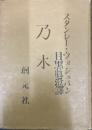 スタンレー・ウォシュバン
目黒真澄譯
乃木
創元社